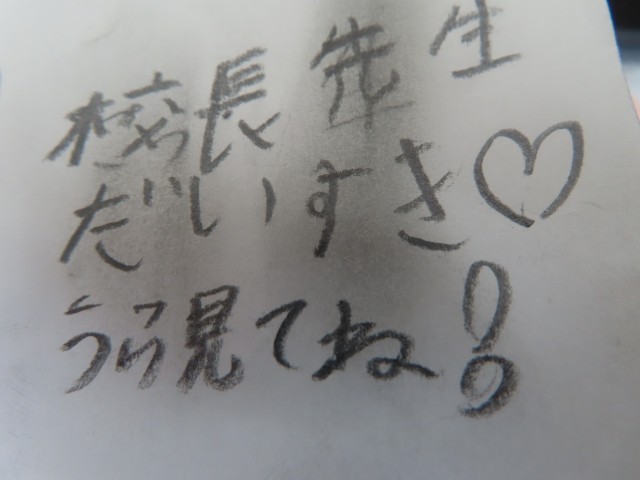 校長先生
だいすき♡
うら見てね!